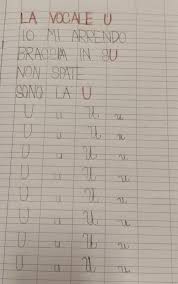 LA VOCALE U
IO MI ARRENDO
BRACCIA IN SU
NON SPATE
SONO LA U
U u U u
U u U u
U u U u
U u U u
U u U u
U u U u
U u U u
U u U u